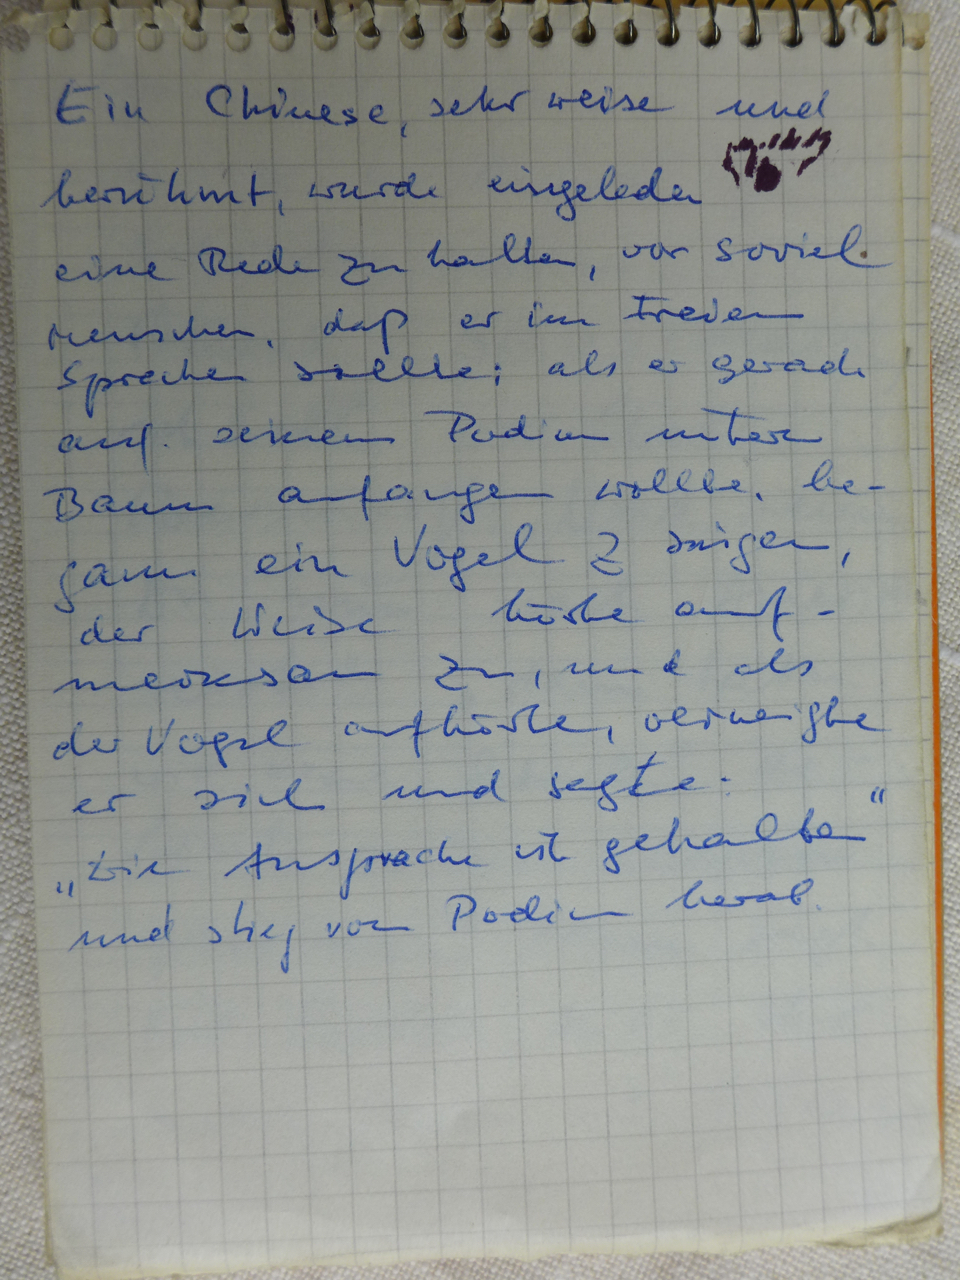 Ein Chinese, sehr weise und
berühmt, wurde eingeladen
eine Rede zu halten, vor soviel
Menschen, daß er im Freien
sprechen sollte; als er gerade
auf seinem Podium unterm
Baum anfangen wollte, be-
gann ein Vogel z singen,
der Weise hörte auf-
merksam zu, und als
der Vogel aufhörte, verneigte
er sich und sagte:
„Die Ansprache ist gehalten“
und stieg vom Podium herab.